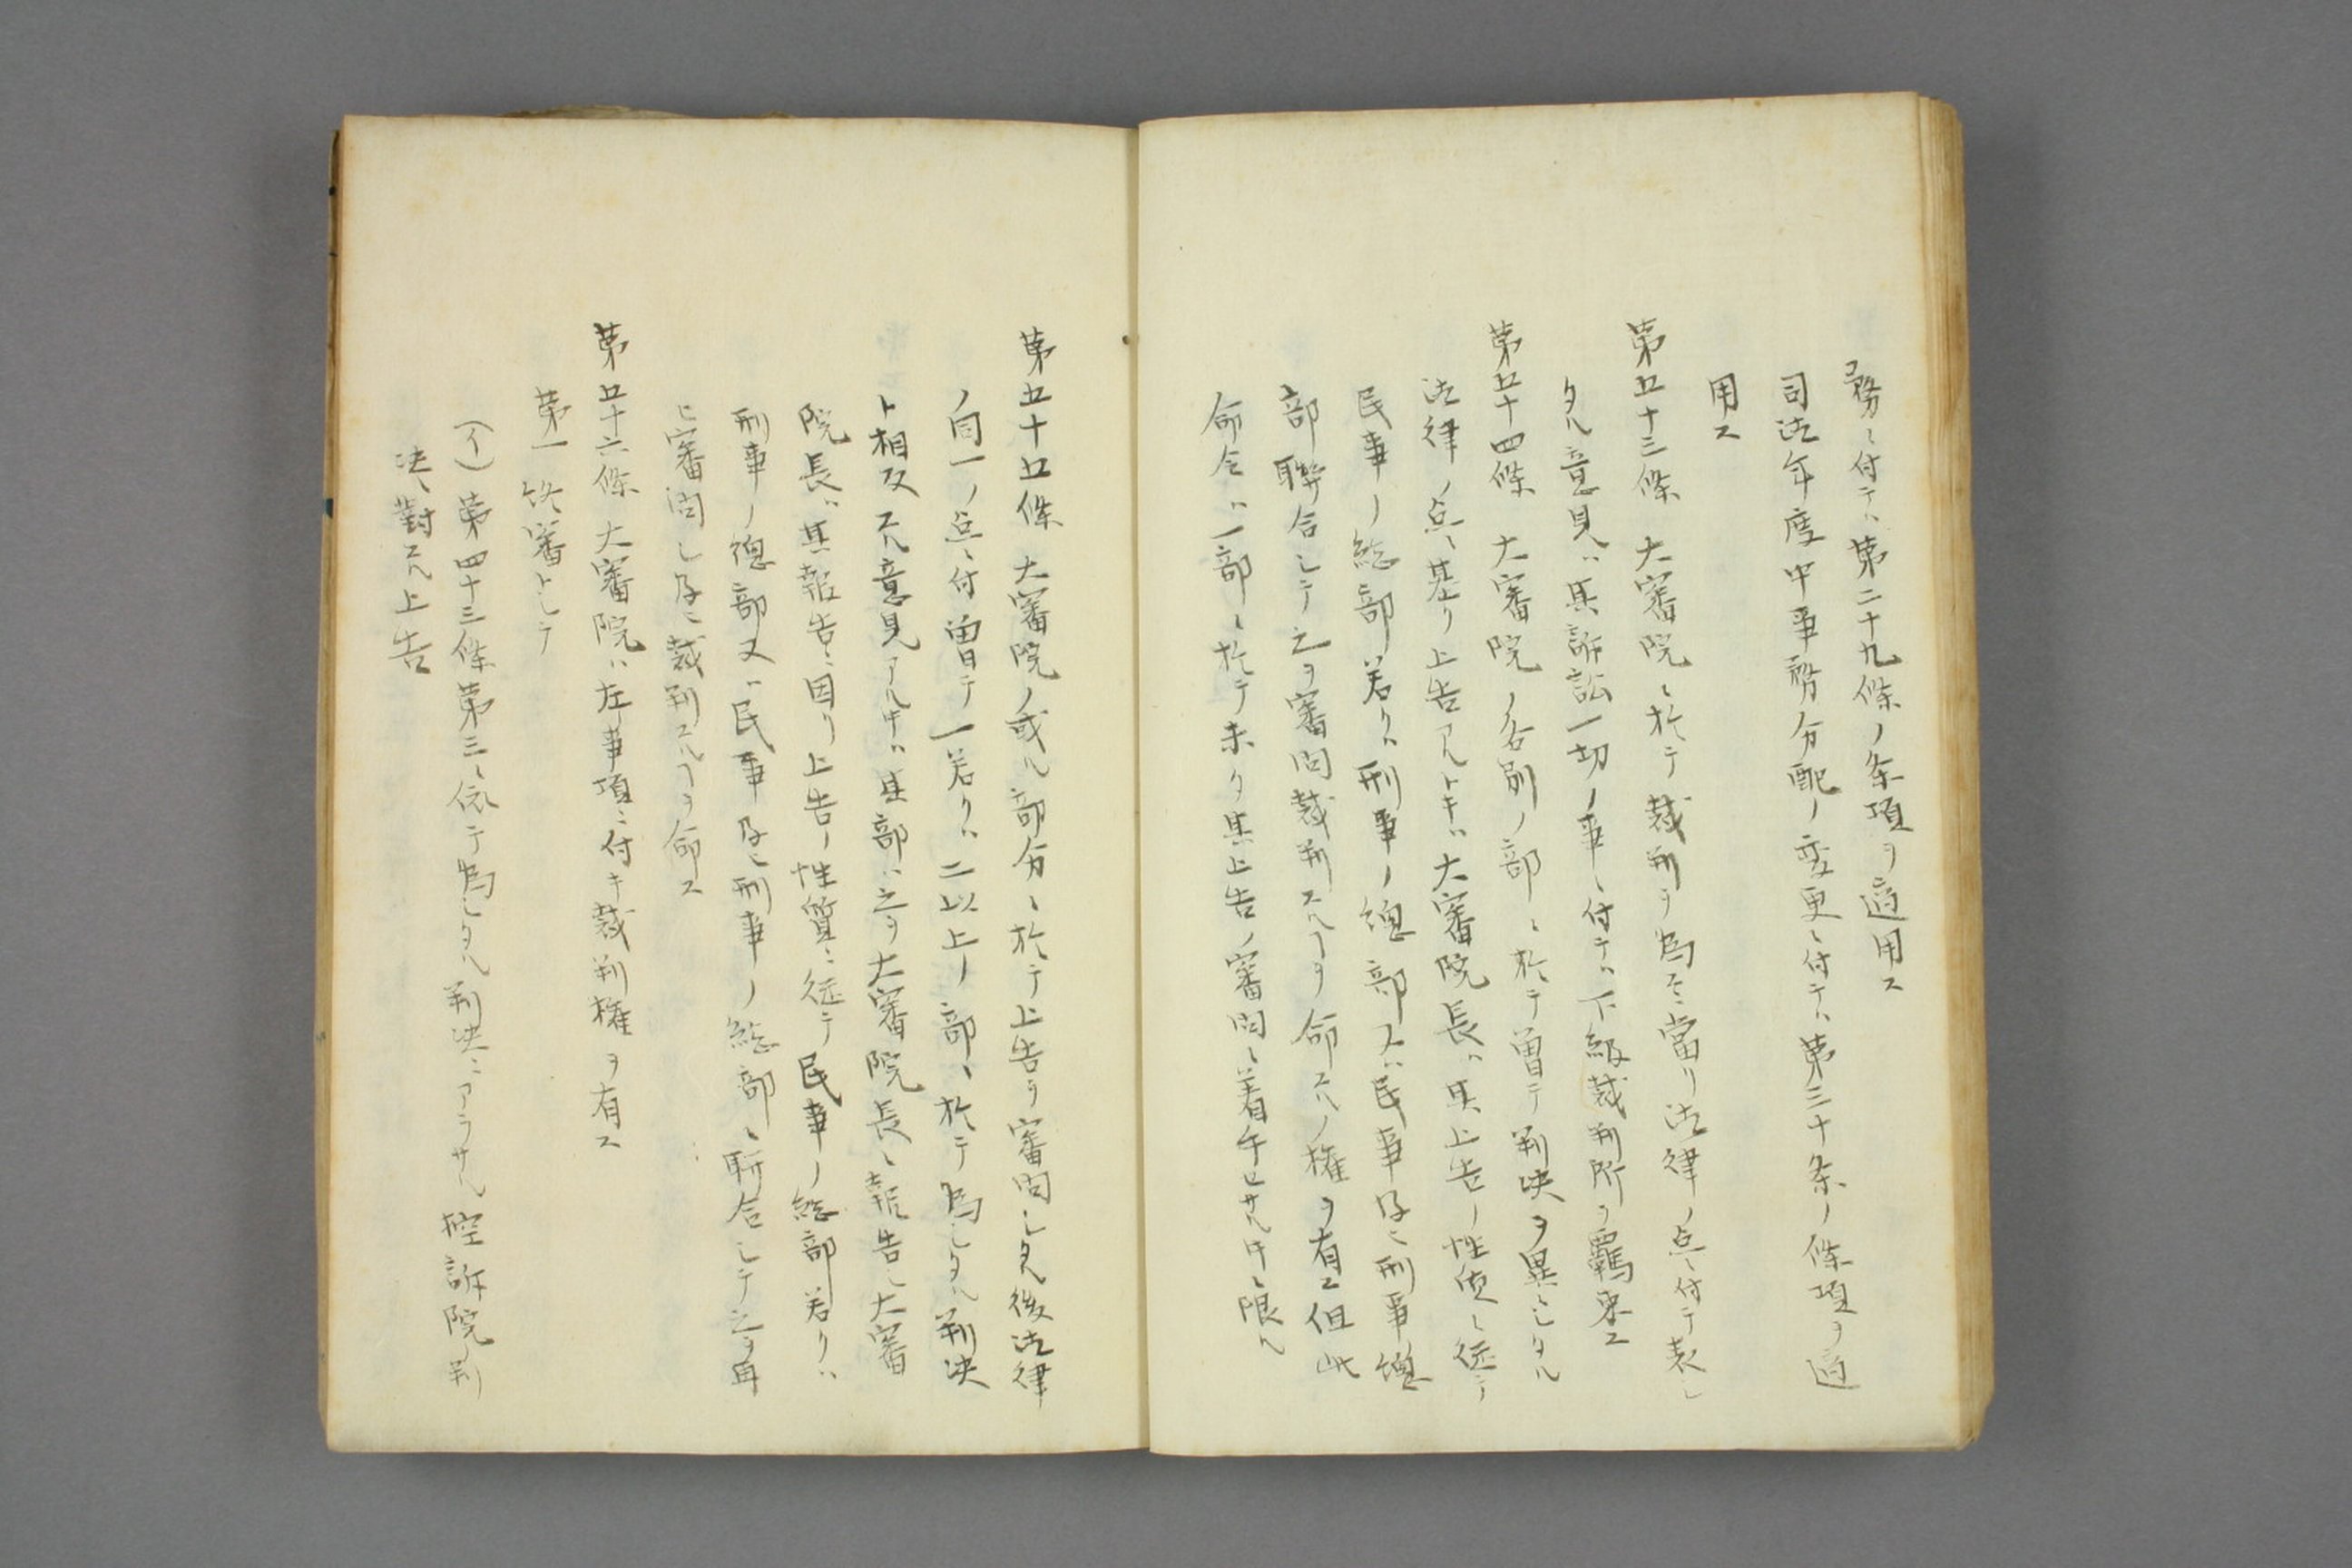 務ニ付テハ第二十九條ノ条項ヲ適用ス
司法年度中事務分配ノ変更ニ付テハ第三十条ノ條項ヲ適
用ス
第五十三條 大審院ニ於テ裁判ヲ為スニ當リ法律ノ点ニ付テ表シ
タル意見ハ其訴訟一切ノ事ニ付テハ下級裁判所ヲ羈束ス
第五十四條 大審院ノ各別ノ部ニ於テ曽テ判决ヲ異ニシタル
法律ノ点ニ基リ上告アルトキハ大審院長ハ其上告ノ性質ニ従テ
民事ノ総部若クハ刑事ノ總部又ハ民事及ヒ刑事ノ總
部聯合シテ之ヲ審問裁判スヘヿヲ命スルノ権ヲ有ス但此
命令ハ一部ニ於テ未タ其上告ノ審問ニ着手セサル時ニ限ル
第五十五條 大審院ノ或ル部分ニ於テ上告ヲ審問シタル後法律
ノ同一ノ点ニ付曽テ一若クハ二以上ノ部ニ於テ為シタル判决
ト相反スル意見アル時ハ其部ハ之ヲ大審院長ニ報告シ大審
院長ハ其報告ニ因リ上告ノ性質ニ従テ民事ノ総部若クハ
刑事ノ總部又ハ民事及ヒ刑事ノ総部ヲ聨合シテ之ヲ再
ヒ審問シ及ヒ裁判スルヿヲ命ス
第五十六條 大審院ハ左事項ニ付キ裁判権ヲ有ス
第一 終審トシテ
(イ)第四十三條第三ニ依テ為シタル判决ニアラサル控訴院ノ判
决ニ對スル上告